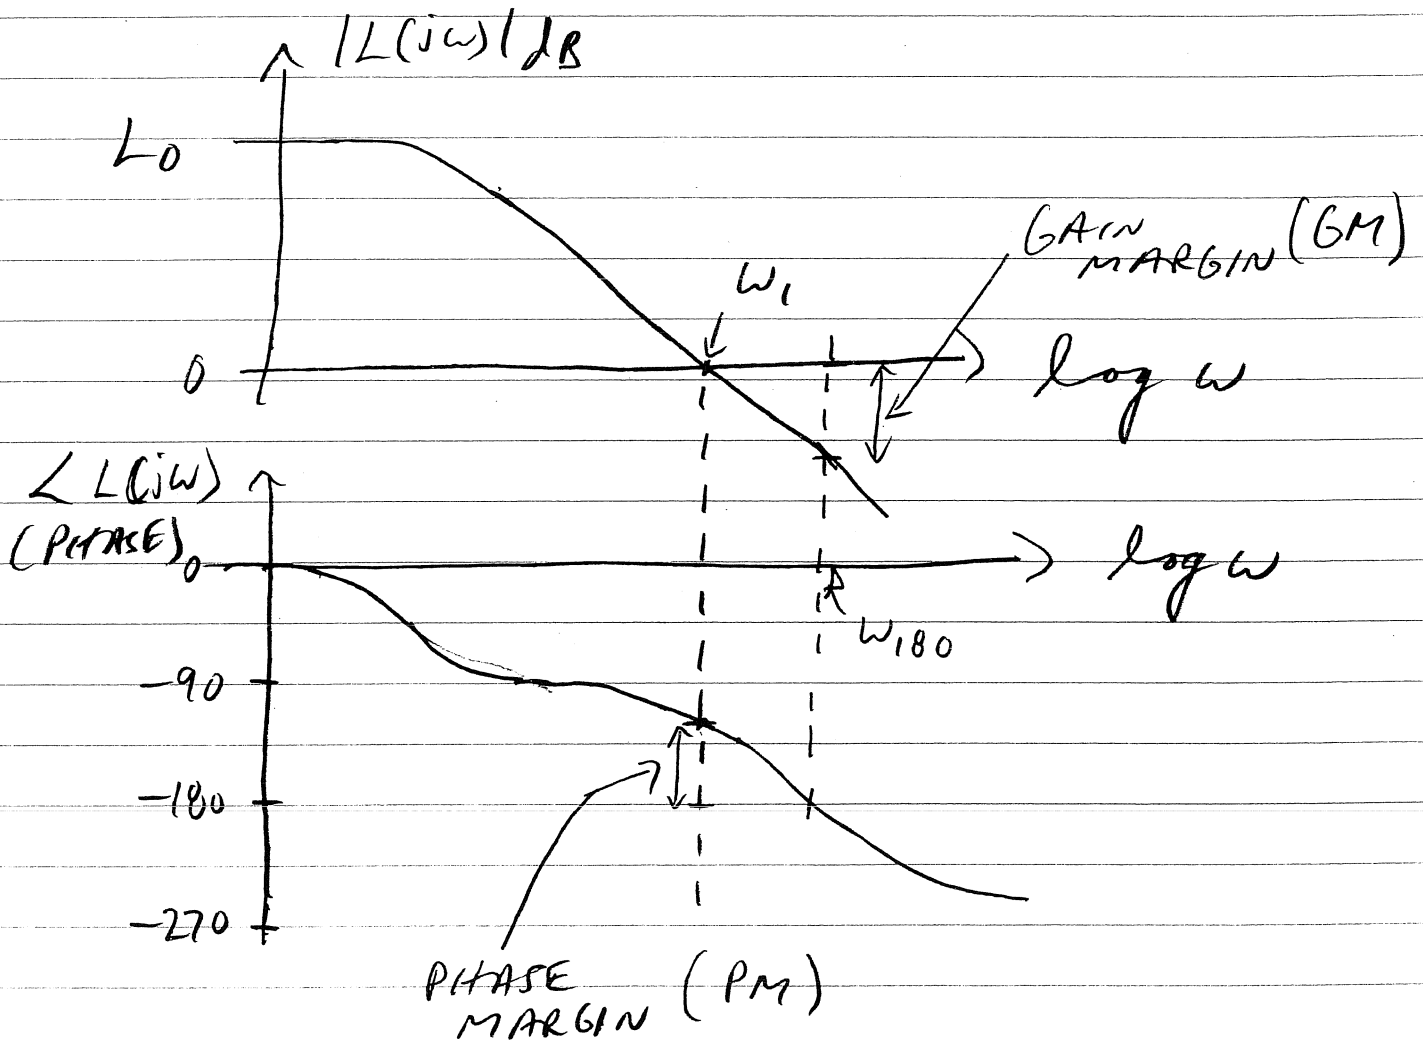 |L(jω)|dB
L0
GAIN
MARGIN (GM)
ω1
0
log ω
∠ L(jω)
(PHASE)
0
log ω
ω180
-90
-180
-270
PHASE
MARGIN (PM)